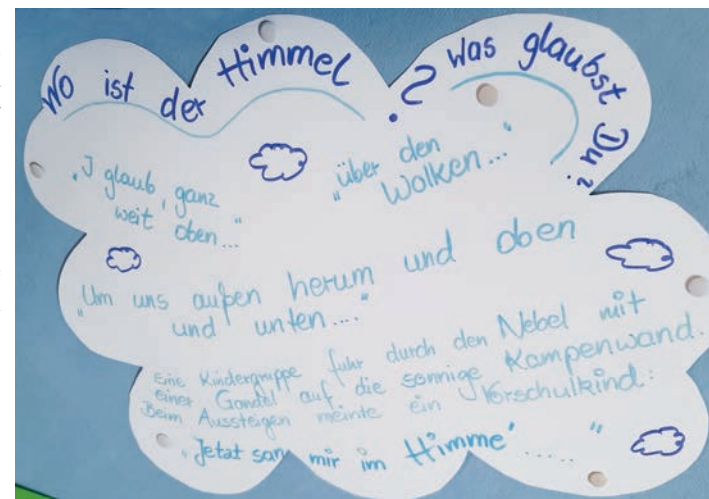 Wo ist der Himmel? Was glaubst Du?
„I glaub, ganz
weit oben..."
„über den
Wolken..."
„Um uns außen herum und oben
und unten...."
Eine Kindergruppe fuhr durch den Nebel mit
einer Gondel auf die sonnige Kampenwand.
Beim Aussteigen meinte ein Vorschulkind:
„Jetzt san mir im Himme'....."